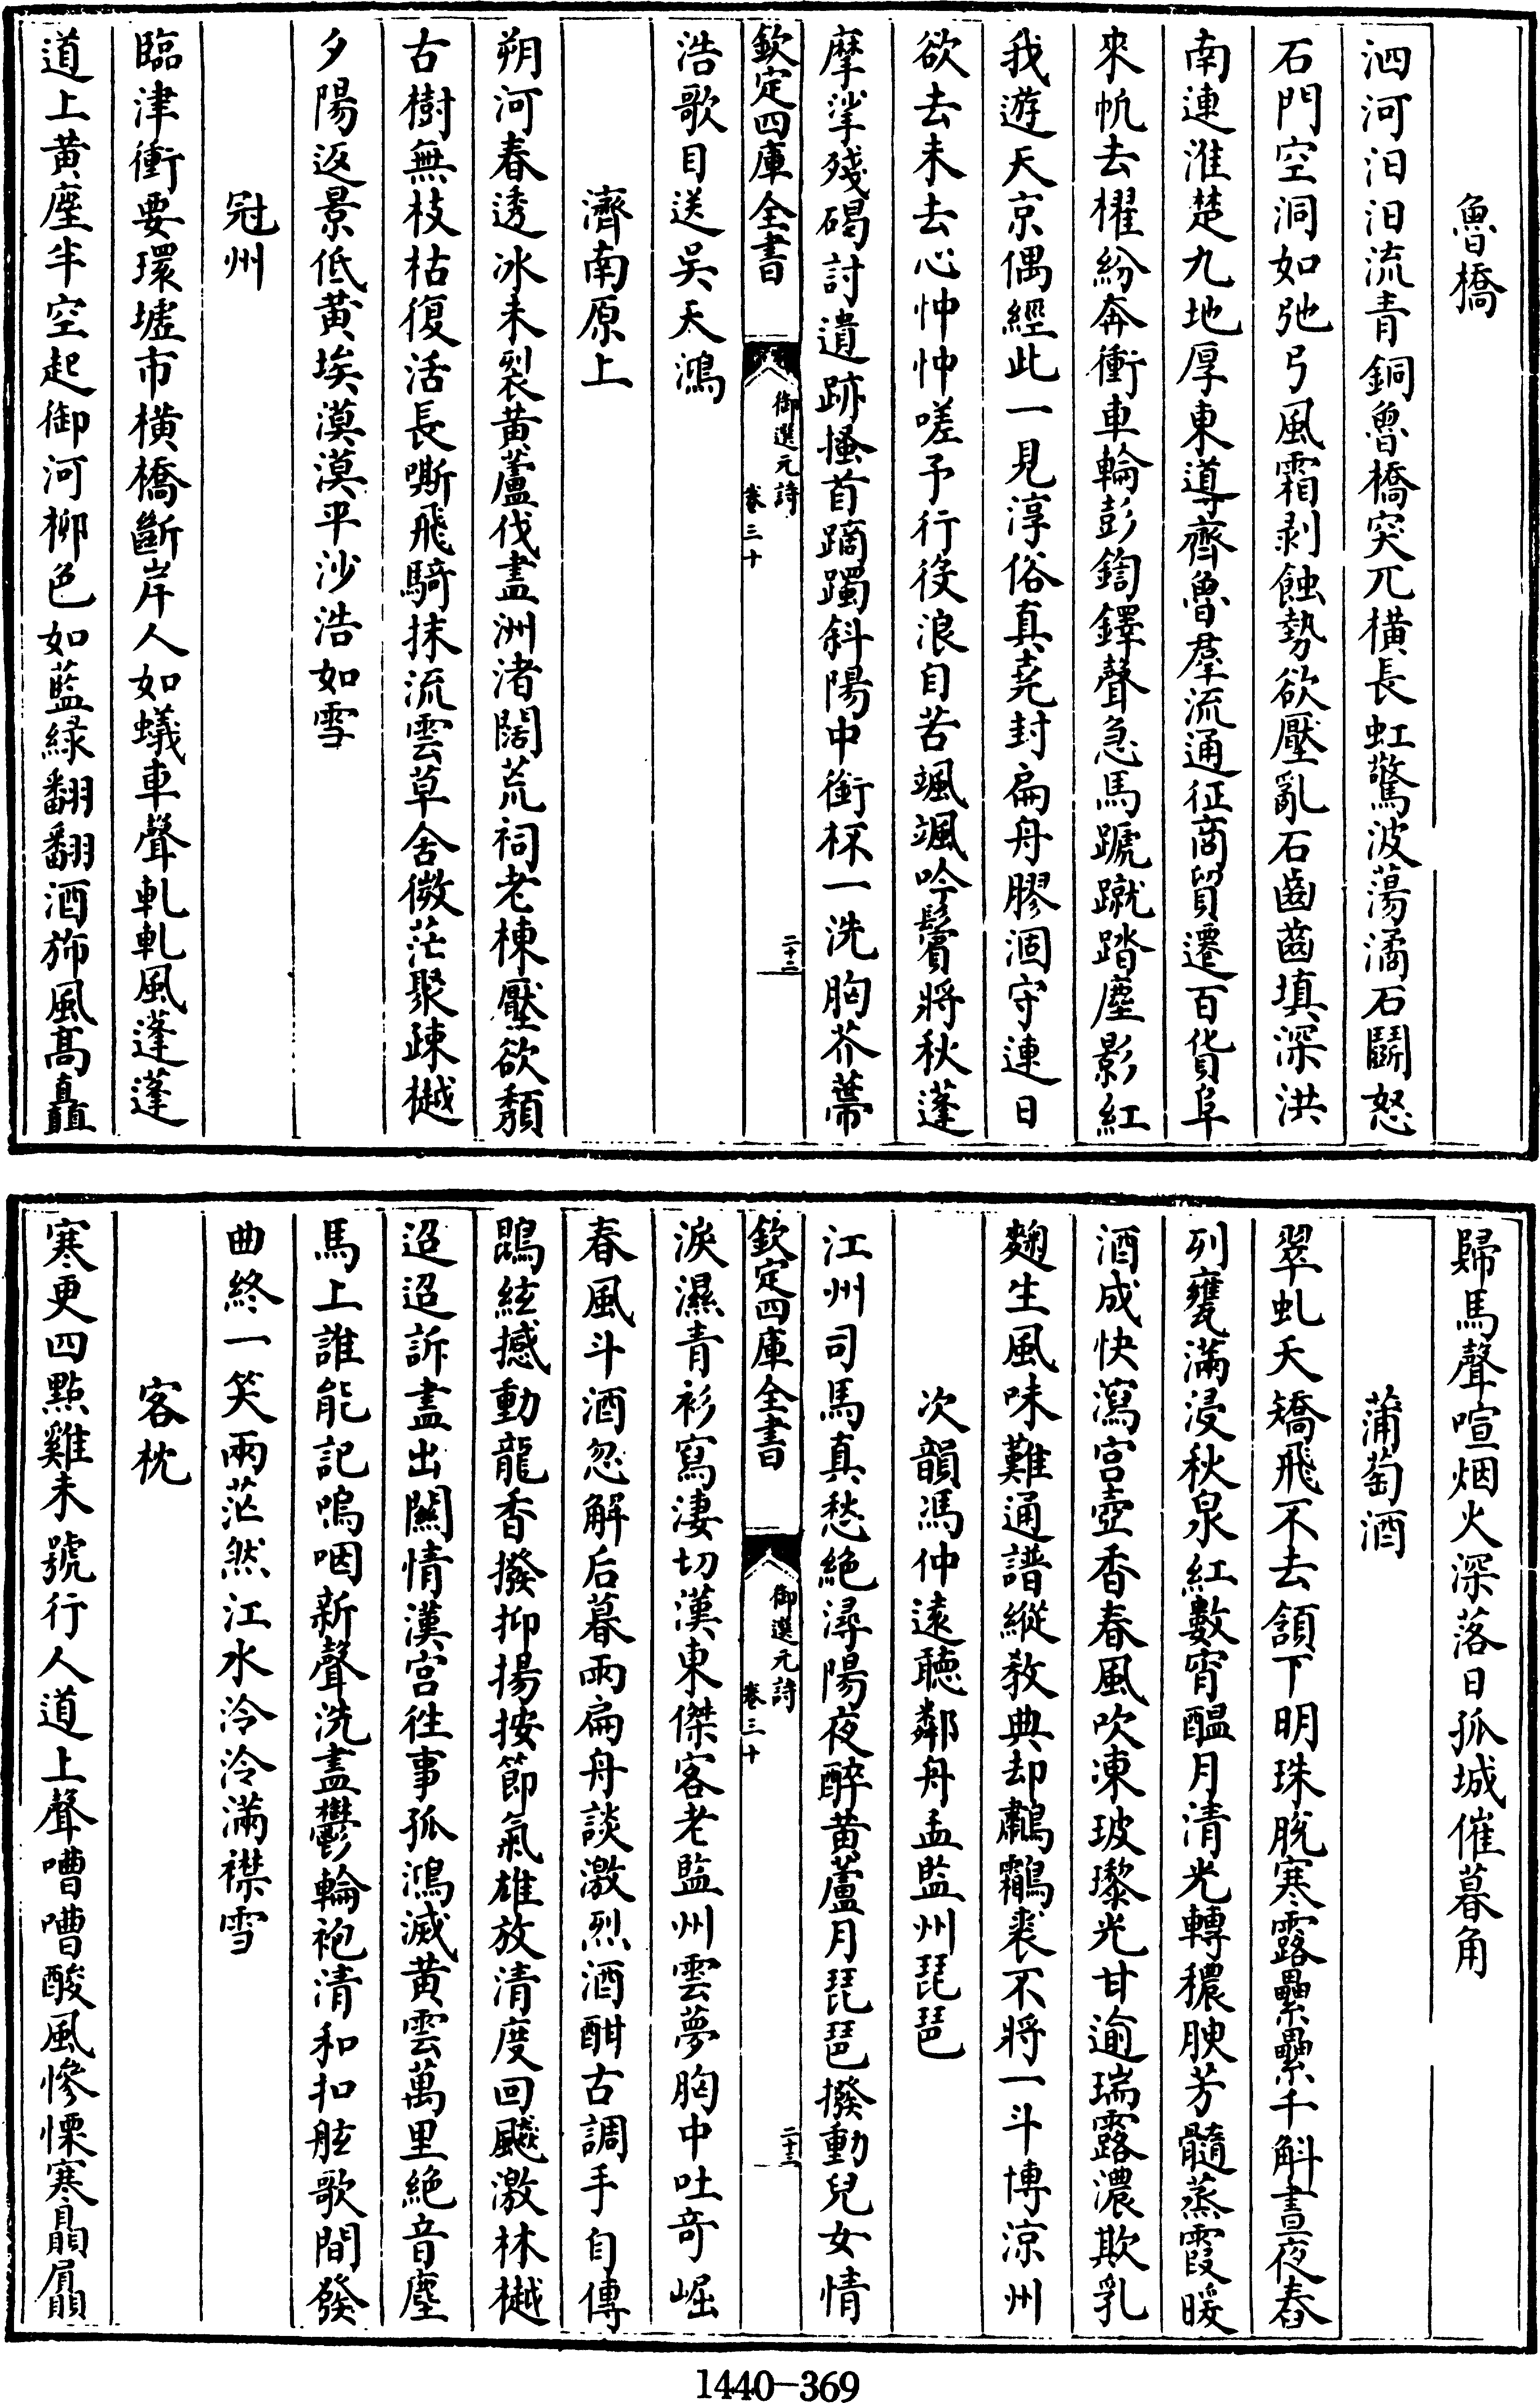 魯橋
泗河汨汨流青銅魯橋突兀橫長虹驚波蕩潏石鬭怒
石門空洞如弛弓風霜剥蝕勢欲壓亂石齒齒填深洪
南連淮楚九地厚東導齊魯羣流通征商貿遷百貨阜
來帆去櫂紛奔衝車輪彭鍧鐸聲急馬蹏蹴踏塵影紅
我遊天京偶經此一見淳俗真堯封扁舟膠涸守連日
欲去未去心忡忡嗟予行役浪自苦颯颯吟鬢將秋蓬
摩挲殘碣討遺跡搔首躑躅斜陽中銜杯一洗胸芥蔕
欽定四庫全書
御選元詩
卷三十
二十二
浩歌目送吳天鴻
濟南原上
朔河春透冰未裂黄蘆伐盡洲渚闊荒祠老棟壓欲頽
古樹無枝枯復活長嘶飛騎抹流雲草舍微茫聚疎樾
夕陽返景低黄埃漠漠平沙浩如雪
冠州
臨津衝要環墟市橫橋斷岸人如蟻車聲軋軋風蓬蓬
道上黄塵半空起御河柳色如藍緑翻翻酒斾風髙矗
歸馬聲喧烟火深落日孤城催暮角
蒲萄酒
翠虬夭矯飛不去頷下明珠脱寒露纍纍千斛晝夜舂
列甕滿浸秋泉紅數宵醖月清光轉穠腴芳髓蒸霞暖
酒成快瀉宫壺香春風吹凍玻瓈光甘逾瑞露濃欺乳
麴生風味難通譜縱教典却鷫鸘裘不將一斗博涼州
次韻馮仲遠聽鄰舟孟監州琵琶
江州司馬真愁絶潯陽夜醉黄蘆月琵琶撥動兒女情
欽定四庫全書
御選元詩
卷三十
二十三
淚濕青衫寫淒切漢東傑客老監州雲夢胸中吐奇崛
春風斗酒忽解后暮雨扁舟談激烈酒酣古調手自傳
鵾絃撼動龍香撥抑揚按節氣雄放清度回飈激林樾
迢迢訴盡出關情漢宫往事孤鴻滅黄雲萬里絶音塵
馬上誰能記嗚咽新聲洗盡鬱輪袍清和扣舷歌間發
曲終一笑兩茫然江水泠泠滿襟雪
客枕
寒更四點雞未號行人道上聲嘈嘈酸風慘慄寒贔屭
1440-369